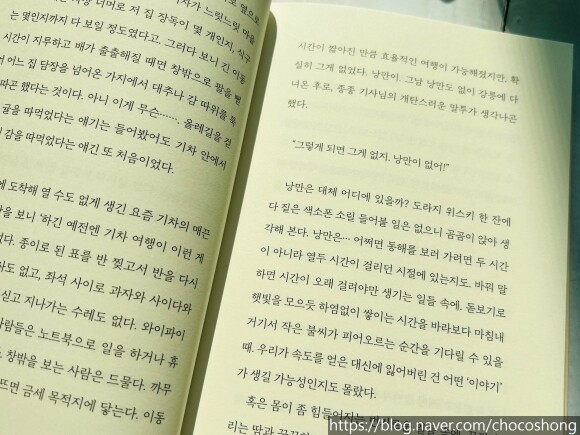 너머로 저 집 장독이 몇 개인지, 식구
는 몇인지까지 다 보일 정도였다고. 그러다 보니 긴 이동
시간이 지루하고 배가 출출해질 때면 창밖으로 팔을 뻗
어느 집 담장을 넘어온 가지에서 대추나 감 따위를 툭
따곤 했다는 것이다. 아니 이게 무슨……. 올레길을 걷
귤을 따먹었다는 얘기는 들어봤어도 기차 안에서
감을 따먹었다는 얘긴 또 처음이었다.
에 도착해 열 수도 없게 생긴 요즘 기차의 매끈
을 보니 '하긴 예전엔 기차 여행이 이런 게
없다. 종이로 된 표를 반 찢고서 반을 다시
도 없고, 좌석 사이로 과자와 사이다와
싣고 지나가는 수레도 없다. 와이파이
사람들은 노트북으로 일을 하거나 휴
창밖을 보는 사람은 드물다. 까무
뜨면 금세 목적지에 닿는다. 이동
시간이 짧아진 만큼 효율적인 여행이 가능해졌지만, 확
실히 그게 없었다. 낭만이. 그날 낭만도 없이 강릉에 다
녀온 후로, 종종 기사님의 개탄스러운 말투가 생각나곤
했다.
"그렇게 되면 그게 없지. 낭만이 없어!"
낭만은 대체 어디에 있을까? 도라지 위스키 한 잔에
다 짙은 색소폰 소릴 들어볼 일은 없으니 곰곰이 앉아 생
각해 본다. 낭만은… 어쩌면 동해를 보러 가려면 두 시간
이 아니라 열두 시간이 걸리던 시절에 있는지도. 바꿔 말
하면 시간이 오래 걸려야만 생기는 일들 속에. 돋보기로
햇빛을 모으듯 하염없이 쌓이는 시간을 바라보다 마침내
거기서 작은 불씨가 피어오르는 순간을 기다릴 수 있을
때. 우리가 속도를 얻은 대신에 잃어버린 건 어떤 '이야기'
가 생길 가능성인지도 몰랐다.
혹은 몸이 좀 힘들어지는
리는 땀과 끈끈
https://blog.naver.com/chocoshong